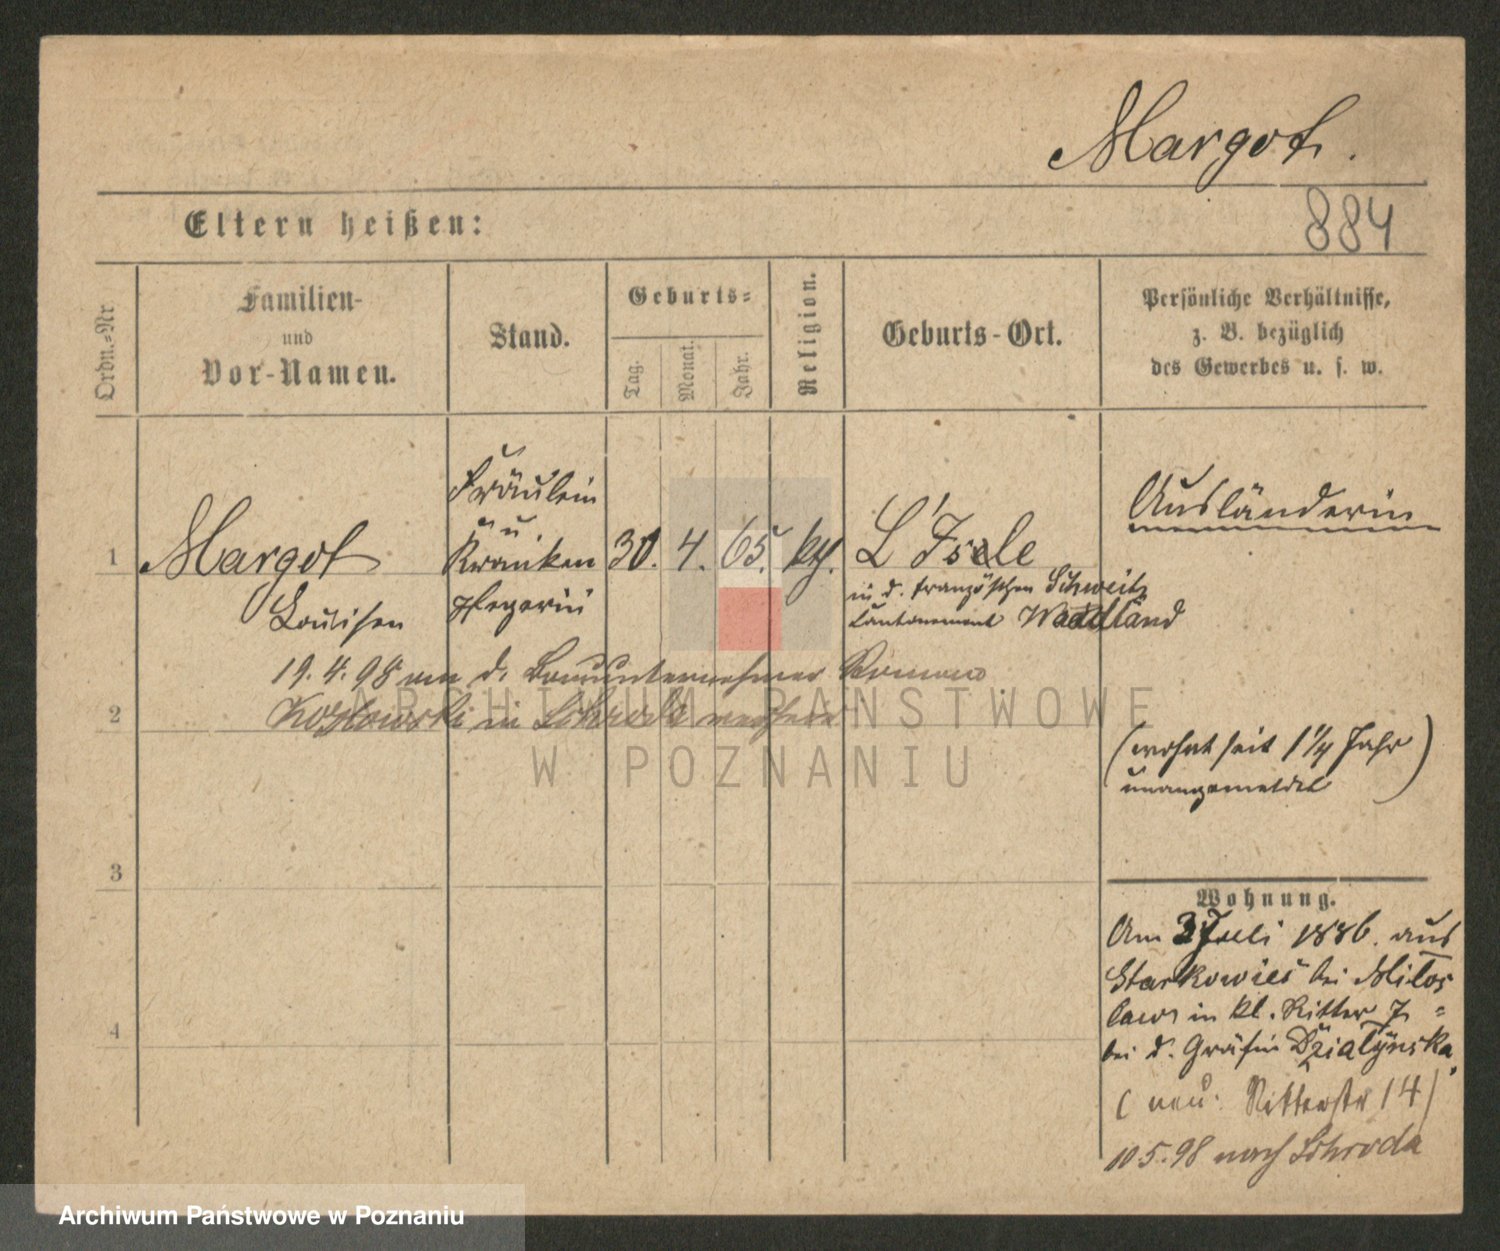 Margot.
Eltern heißen:
884
Ordn.-Nr
Familien-
und
Vor-Namen.
Stand.
Geburts-
Tag.
Monat.
Jahr.
Religion.
Geburts-Ort.
Persönliche Verhältnisse,
z. B. bezüglich
des Gewerbes u. s. w.
1
Margot
Louisen
Fräulein
u.
Kranken
pflegerin
30. 4. 65. kth.
L'Isle
in d. französchen Schweitz
Cantonement Waadtland
Ausländerin
19. 4. 98 an d. Bauunternehmer Roman
2
Kozlowski in Schroda verh
(wohnt seit 1 1/4 Jahr
unangemeldet)
3
Wohnung.
Am 3 Juli 1886. aus
Starkowies bei Milos
law in kl. Ritter 7
bei d. Gräfin Dzialynska
4
(neu: Ritterstr 14)
10 5. 98 nach Schroda
ARCHIWUM PAŃSTWOWE
W POZNANIU
Archiwum Państwowe w Poznaniu